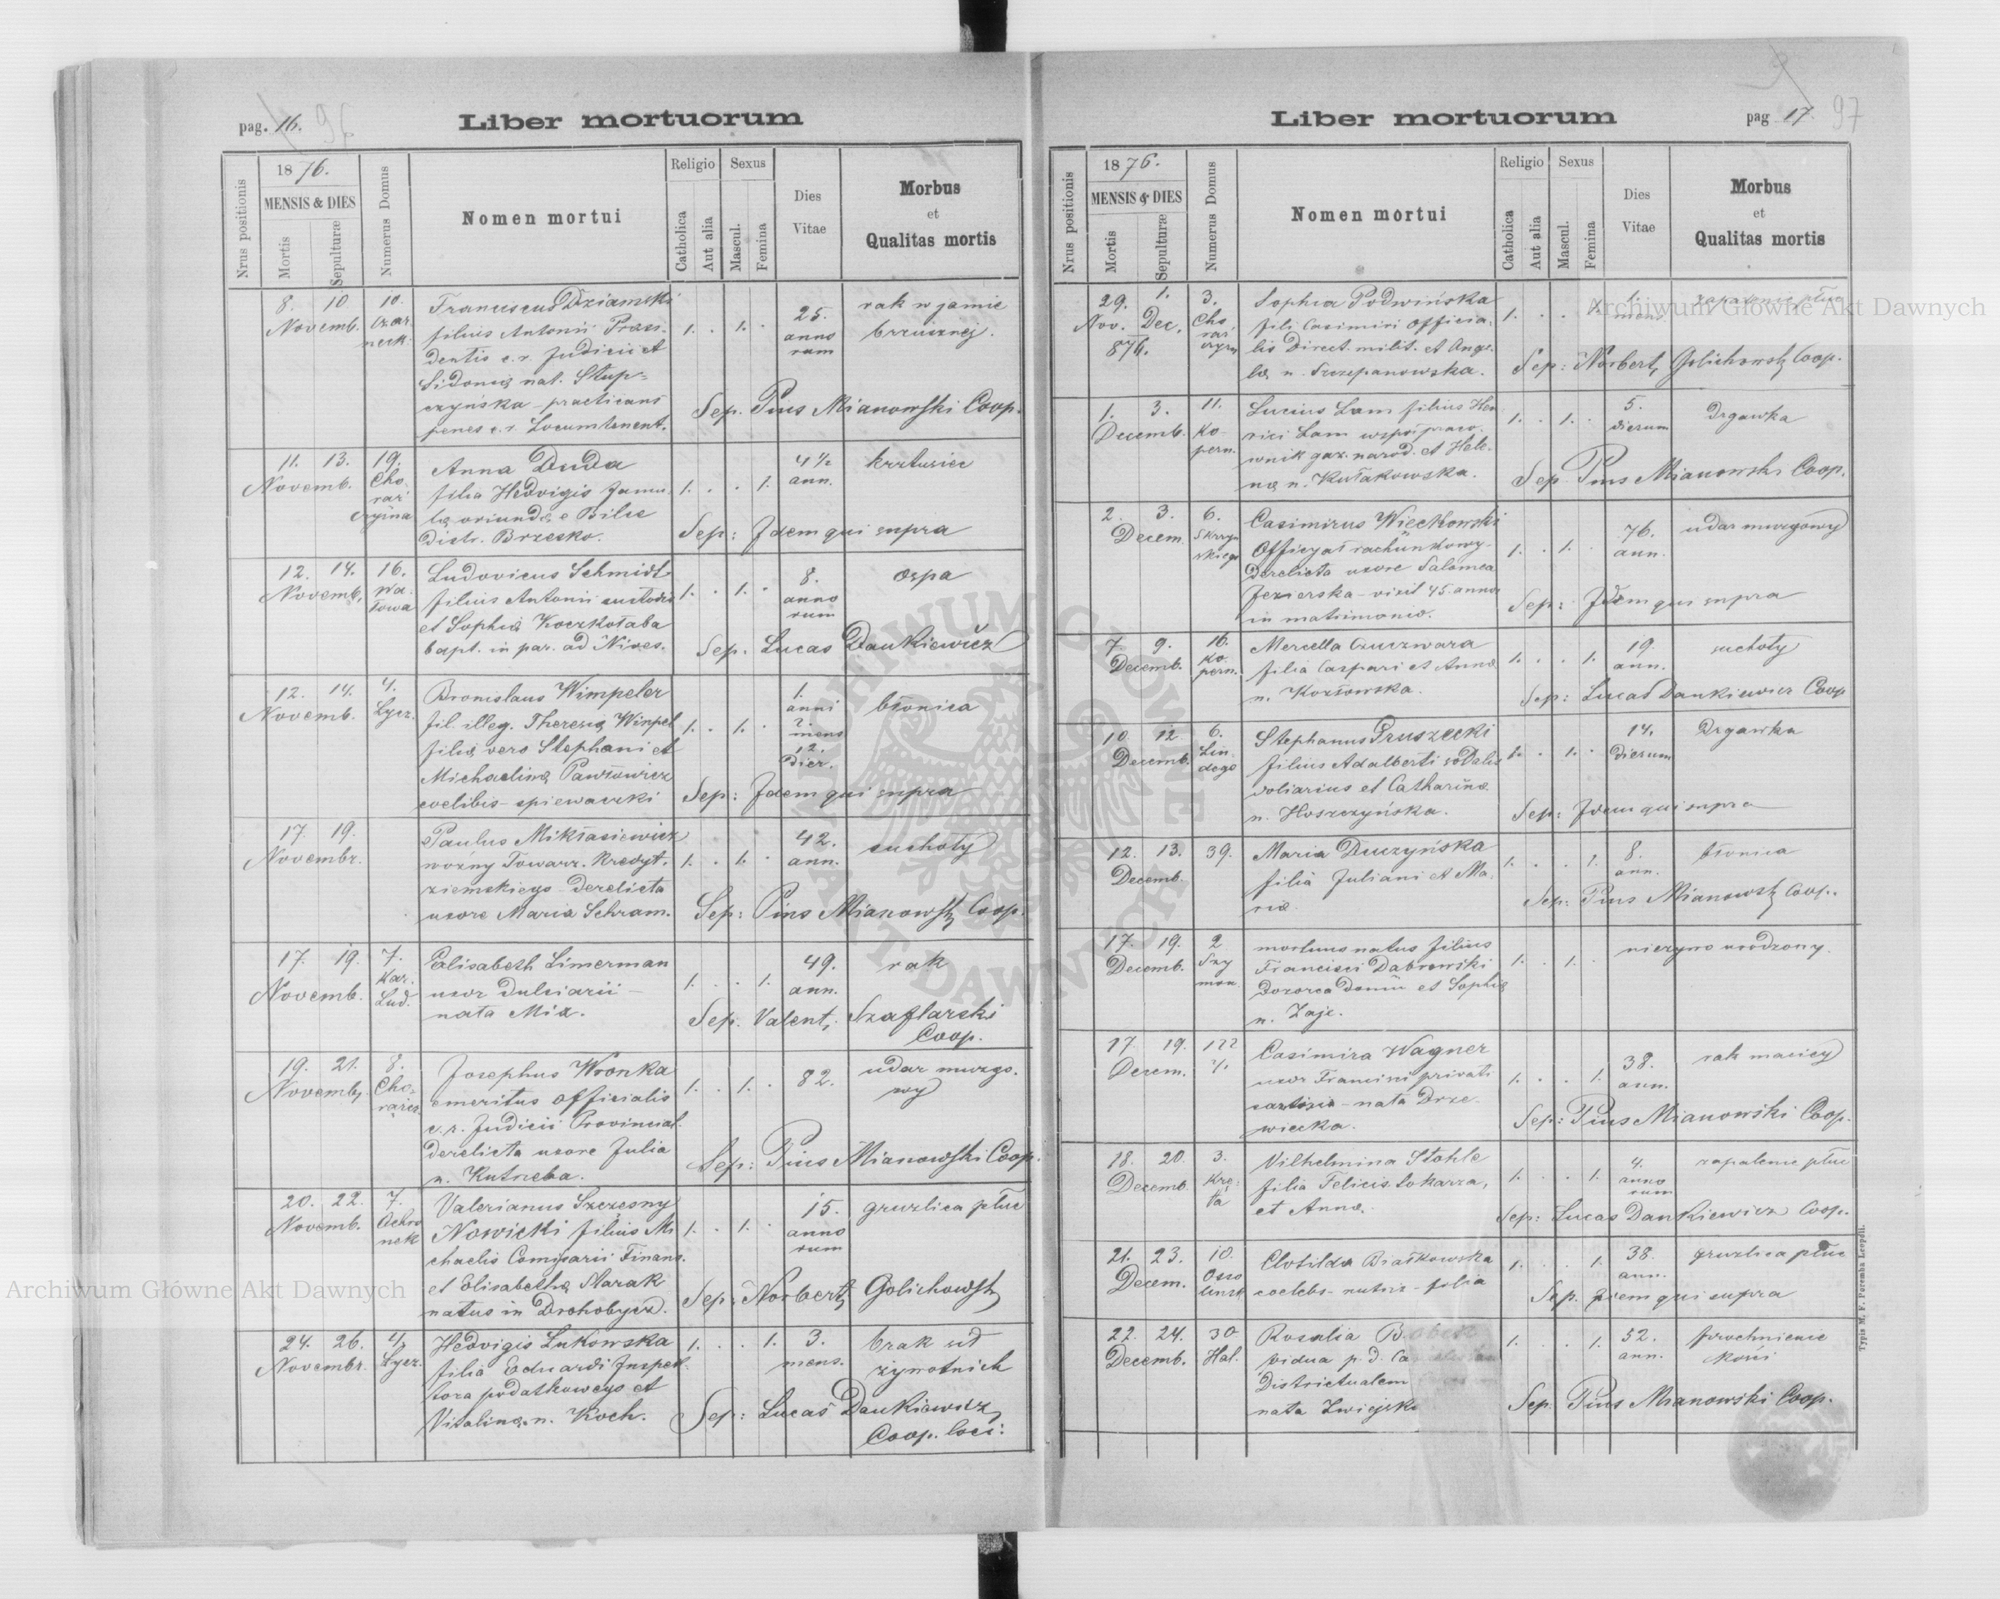 pag. 16. 96
Liber mortuorum
Nrus positionis
1876.
MENSIS & DIES
Mortis
Sepulturæ
Numerus Domus
Nomen mortui
Religio
Catholica
Aut alia
Sexus
Mascul.
Femina
Dies
Vitae
Morbus
et
Qualitas mortis
8. 10 Novemb.
10.
Franciscus Dziamski
filius Antonii Praesi
dentis c. r. Judicii et
Sidoniæ nat. Skup=
czyńska - practicans
penes c. r. Locumtenent.
1. . 1. .
25.
anno
rum
rak w jamie
brzusznej.
Sep. Pius Mianowski Coop.
11. 13. Novemb.
19.
Cho
rąż
czyzna
Anna Duda
filia Hedvigis famu
læ oriundæ e Bilce
distr. Brzesko.
1. . . 1.
4½
ann.
krztusiec
Sep: Idem qui supra
12. 14. Novemb.
16.
Wa
łowa
Ludovicus Schmidt
filius Antonii custodis
et Sophiæ Koczkołaba
bapt. in par. ad Nives.
1. . 1. .
8.
anno
rum
ospa
Sep. Lucas Dankiewicz
12. 14. Novemb.
4.
Lycz.
Bronislaus Wimpeler
fil illeg. Theresiæ Wimpel
filiæ vero Stephani et
Michaelinæ Pawłowicz
coelibis - spiewaczki
1. . 1. .
1.
anni
2.
mens
12.
dier.
błonica
Sep: Idem qui supra
17. 19. Novembr.
Paulus Mikłasiewicz
woźny Towarz. Kredyt.
ziemskiego - derelicta
uxore Maria Schram.
1. . 1. .
42.
ann.
suchoty
Sep: Pius Mianowski Coop.
17. 19. Novemb.
7.
Kar.
Lud.
Elisabeth Limerman
uxor dulciarii -
nata Mix.
1. . . 1.
49.
ann.
rak
Sep. Valent. Szaflarski
Coop.
19. 21. Novemb,
8.
Cho
rążcz.
Josephus Wronka
emeritus officialis
c. r. Judicii Provincial.
derelicta uxore Julia
n. Kutrieba.
1. . 1. .
82.
udar muzgo.
wy
Sep: Pius Mianowski Coop.
20. 22. Novemb.
7.
Valerianus Szczęsny
Nowicki filius Mi
chaelis Comisarii Finans.
et Elisabethæ Marak
natus in Drohobycz.
1. . 1. .
15.
anno
rum
gruzlica płuc
Sep: Norbert Golichowski
24. 26. Novembr.
4.
Lycz.
Hedvigis Lukowska
filia Eduardi Inspek
tora podatkowego et
Vitalinæ n. Koch.
1. . . 1.
3.
mens.
brak sił
żywotnich
Sep: Lucas Dankiewicz
Coop. loci:
Liber mortuorum
pag 17. 97
Nrus positionis
1876.
MENSIS & DIES
Mortis
Sepulturæ
Numerus Domus
Nomen mortui
Religio
Catholica
Aut alia
Sexus
Mascul.
Femina
Dies
Vitae
Morbus
et
Qualitas mortis
29. 1.
Nov. Dec.
876.
3.
Cho
rąż
czyzn
Sophia Podwińska
fili Casimiri officia.
lis Direct. milit. et Ange
læ n. Szczepanowska.
1. . . 1.
1.
mens.
zapalenie płuc
Sep: Norbert, Golichowski Coop.
1. 3.
Decemb.
11.
Ko
pern.
Lucius Lam filius Hen
rici Lam współpraco
wnik gaz. narod. et Hele
næ n. Kułakowska.
1. . 1. .
5.
dierum
Drgawka
Sep. Pius Mianowski Coop.
2. 3.
Decem.
6.
Casimirus Wieckowski
Officyał rachunkowy -
Derelicta uxore Salomea
Jezierska - vixit 45. annos
in matrimonio.
1. . 1. .
76.
ann.
udar muzgowy
Sep: Idem qui supra
7. 9.
Decemb.
16.
Ko
pern.
Mercella Czuczwara
filia Caspari et Annæ
n. Kozłowska.
1. . . 1.
19.
ann.
suchoty
Sep: Lucas Dankiewicz Coop
10. 12
Decemb.
6.
Lin
dego
Stephanus Pruszecki
filius Adalberti sodalis
voliarius et Catharinæ
n. Hoszczyńska.
1. . 1. .
14.
dierum
Drgawka
Sep: Idem qui supra
12. 13.
Decemb.
39.
Maria Duczyńska
filia Juliani et Ma.
riæ.
1. . . 1.
8.
ann.
błonica
Sep: Pius Mianowski Coop.
17. 19.
Decemb.
2
Szy
mon.
mortuus natus filius
Francisci Dąbrowski
Dozorca domu et Sophiæ
n. Zajc.
1. . 1. .
nieżywo urodzony.
17. 19.
Decem.
Casimira Wagner
uxor Francisci privati
- nata Drze.
wiecka.
1. . . 1.
38.
ann.
rak macicy
Sep: Pius Mianowski Coop.
18. 20.
Decemb.
3.
Krę
ta
Vilhelmina Stohle
filia Felicis lokarza,
et Annæ.
1. . . 1.
4.
anno
rum
zapalenie płuc
Sep: Lucas Dankiewicz Coop.
21. 23.
Decem.
10.
Osso
linsk
Clotilda Białkowska
coelebs - nutrix - folia
1. . . 1.
38.
ann.
gruzlica płuc
Sep. Idem qui supra
22. 24.
Decemb.
30
Hal.
Rosalia
vidua p. d.
Districtualem
nata Zwiejski
1. . . 1.
52.
ann.
próchnienie
kości
Sep. Pius Mianowski Coop.
Typis M. F. Poremba Leopoli.
Archiwum Główne Akt Dawnych
Archiwum Główne Akt Dawnych
ARCHIWUM GŁÓWNE AKT DAWNYCH